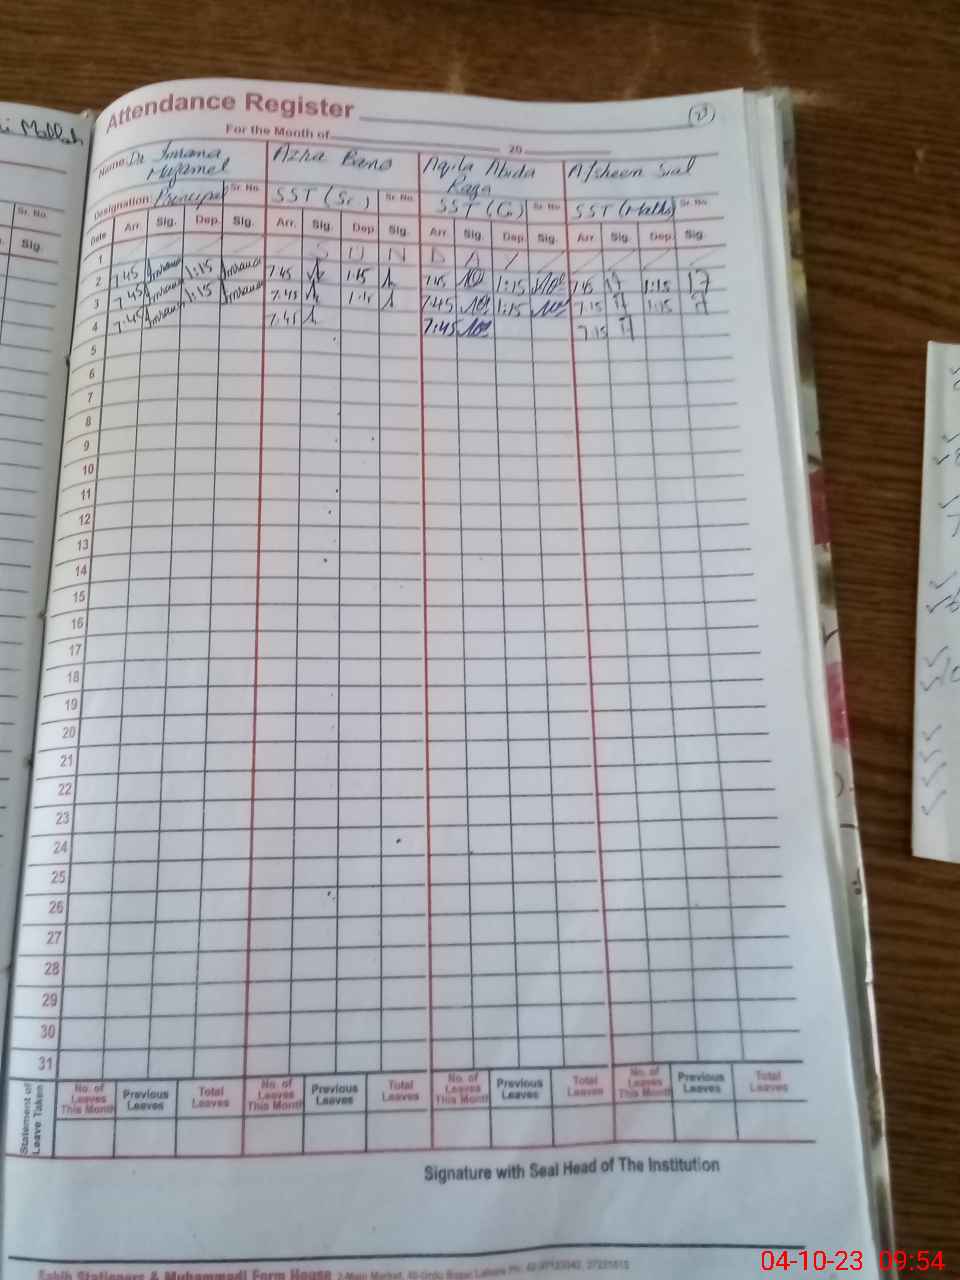 Mallah
Attendance Register
For the Month of 20
Name: Dr Imrana Mujamel Azra Bano Aqila Abida Raza Afsheen Sial
Designation: Principal Sr. No. SST (Sc) Sr. No SST (G) Sr. No SST (Maths) Sr. No.
Date Arr. Sig. Dep. Sig. Arr. Sig. Dep. Sig. Arr. Sig. Dep. Sig. Arr. Sig. Dep. Sig.
Sr. No
Sig.
1 S U N D A Y
2 7:45 Imrana 1:15 Imrana 7:45 1:15 7:45 1:15 7:45 1:15
3 7:45 Imrana 1:15 Imrana 7:45 1:15 7:45 1:15 7:15 1:15
4 7:45 Imrana 7:45 7:45 7:15
5
6
7
8
9
10
11
12
13
14
15
16
17
18
19
20
21
22
23
24
25
26
27
28
29
30
31
Statement of Leave Taken
No. of Leaves This Month Previous Leaves Total Leaves No. of Leaves This Month Previous Leaves Total Leaves No. of Leaves This Month Previous Leaves Total Leaves No. of Leaves This Month Previous Leaves Total Leaves
Signature with Seal Head of The Institution
Sabih Stationers & Muhammadi Form House 2-Main Market, 40-Urdu Bazar Lahore Ph:
04-10-23 09:54